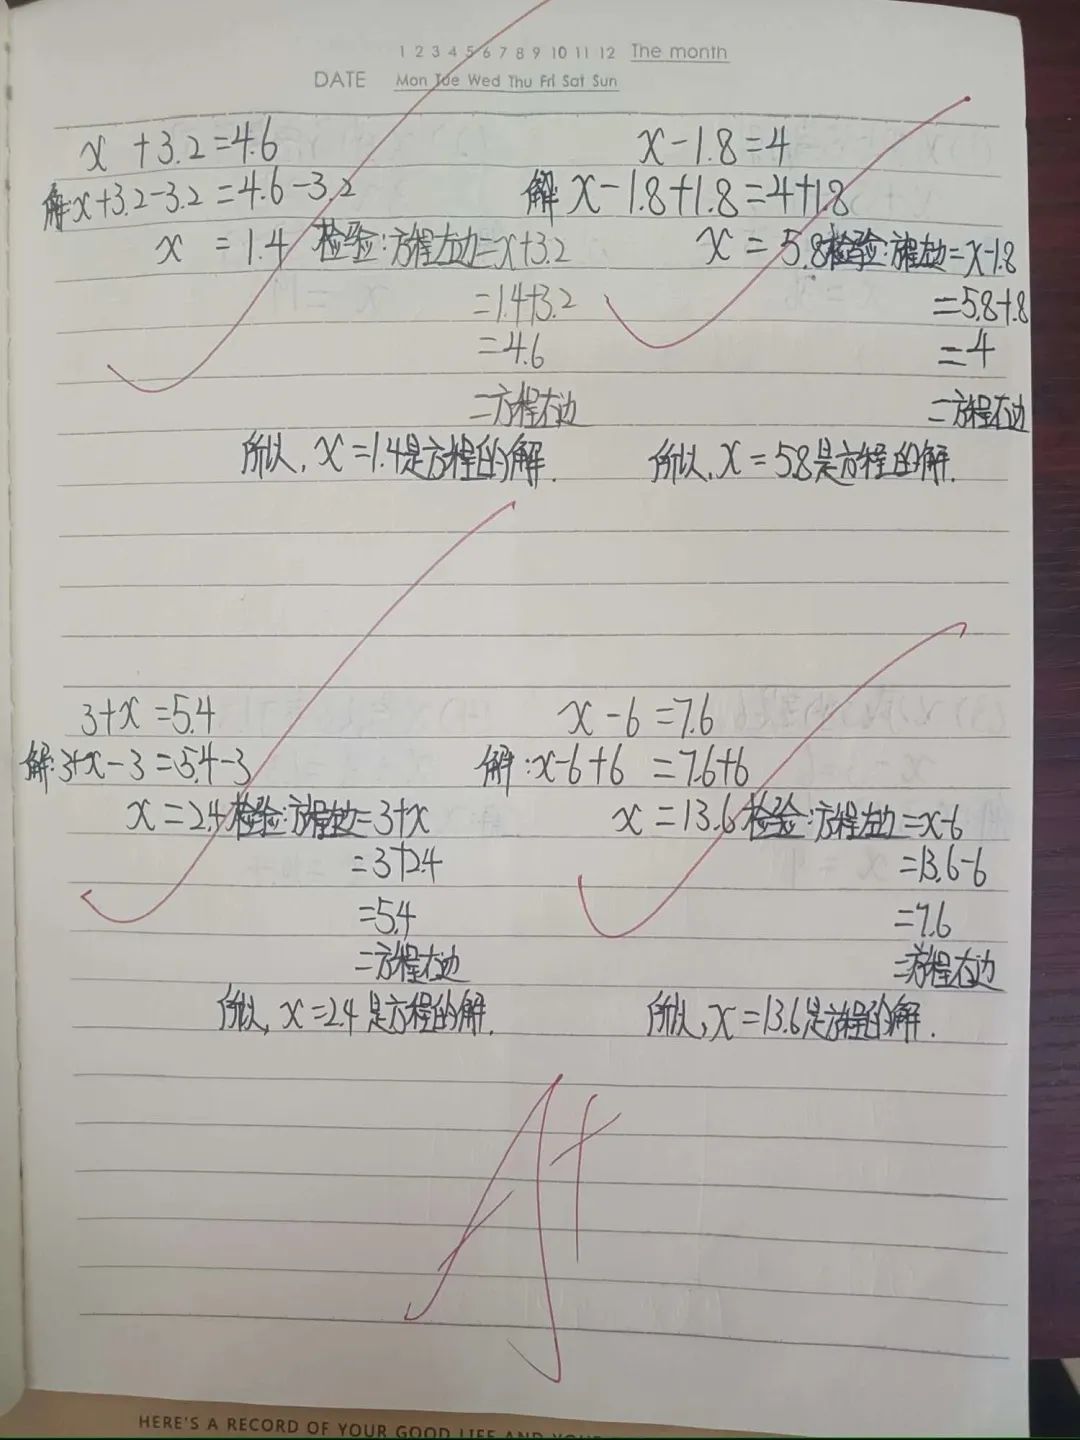 1 2 3 4 5 6 7 8 9 10 11 12 The month
DATE Mon Tue Wed Thu Fri Sat Sun
x + 3.2 = 4.6
解:x+3.2-3.2 = 4.6-3.2
x = 1.4 检验:方程左边=x+3.2
=1.4+3.2
=4.6
=方程右边
所以, x=1.4是方程的解.
x-1.8=4
解: x-1.8+1.8=4+1.8
x = 5.8 检验:方程左边=x-1.8
=5.8+1.8
=4
=方程右边
所以, x=5.8是方程的解.
3+x=5.4
解:3+x-3=5.4-3
x=2.4 检验:方程左边=3+x
=3+2.4
=5.4
=方程右边
所以, x=2.4是方程的解.
x-6=7.6
解:x-6+6=7.6+6
x=13.6 检验:方程左边=x-6
=13.6-6
=7.6
=方程右边
所以, x=13.6是方程的解.
A+
HERE'S A RECORD OF YOUR GOOD LIFE AND